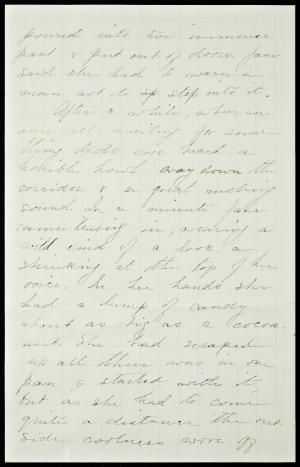 poured into two immense
pans & put out of doors. Jane
said she had to warn a
man not to step into it.
After a while, when we
were all waiting for some-
thing to do we heard a
horrible howl way down the
corridor & a great rushing
sound. In a minute Jane
came tearing in, wearing a
wild kind of a look &
shrieking at the top of her
voice. In her hands she
had a lump of candy
about as big as a cocoa-
nut. She had scraped
up all there was in one
pan & started with it,
but as she had to come
quite a distance the out-
side coolness wore off